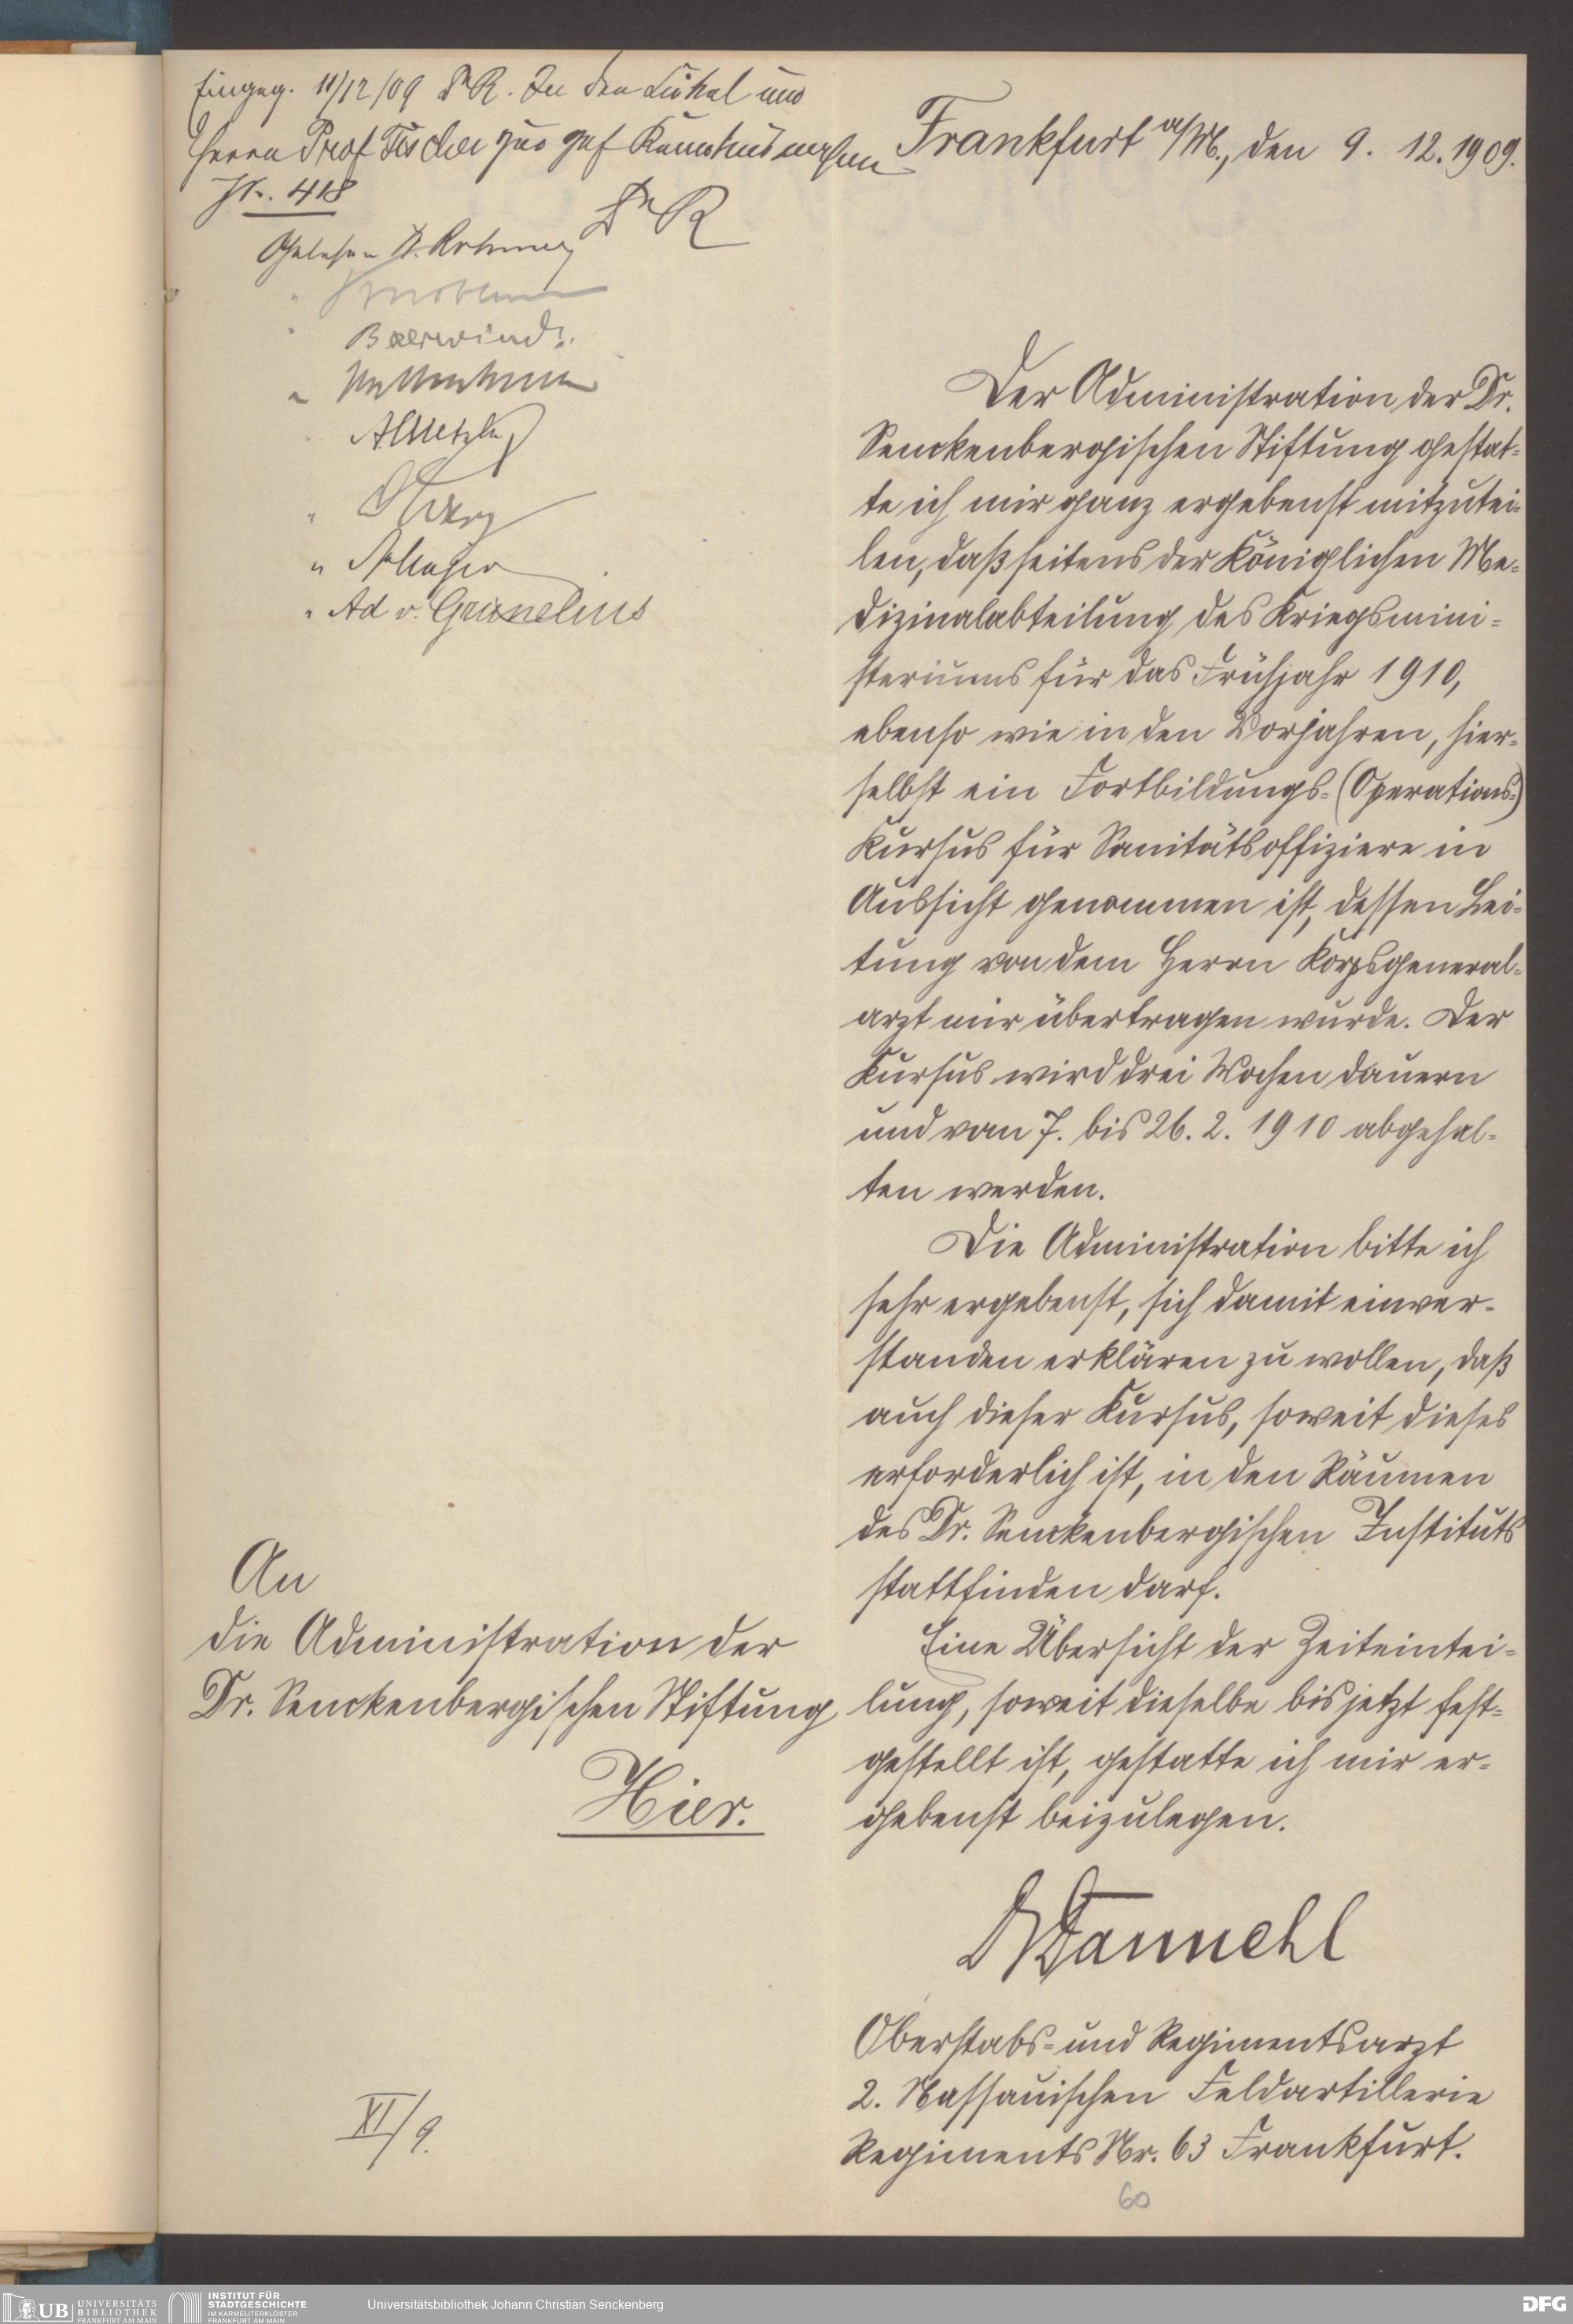 Eingeg. 11/12/09 Dr R. In den Cirkul und
Herrn Prof Fischer zur gef Kenntnisnahme
Nr. 418
Dr R
Gelesen
Beerwind
A Metzler
Ad v. Grunelius
Frankfurt a/M., den 9. 12. 1909.
Der Administration der Dr.
Senckenbergischen Stiftung gestat-
te ich mir ganz ergebenst mitzutei-
len, daß seitens der Königlichen Me-
dizinalabteilung des Kriegsmini-
steriums für das Frühjahr 1910,
ebenso wie in den Vorjahren, hier-
selbst ein Fortbildungs-(Operations-)
Kursus für Sanitätsoffiziere in
Aussicht genommen ist, dessen Lei-
tung von dem Herrn Korpsgeneral-
arzt mir übertragen wurde. Der
Kursus wird drei Wochen dauern
und vom 7. bis 26. 2. 1910 abgehal-
ten werden.
Die Administration bitte ich
sehr ergebenst, sich damit einver-
standen erklären zu wollen, daß
auch dieser Kursus, soweit dieses
erforderlich ist, in den Räumen
des Dr. Senckenbergischen Instituts
stattfinden darf.
Eine Übersicht der Zeiteintei-
lung, soweit dieselbe bis jetzt fest-
gestellt ist, gestatte ich mir er-
gebenst beizulegen.
An
die Administration der
Dr. Senckenbergischen Stiftung
Hier.
Dr Dannehl
Oberstabs- und Regimentsarzt
2. Nassauischen Feldartillerie
Regiments Nr. 63 Frankfurt.
XI/9.
60
UB UNIVERSITÄTS
BIBLIOTHEK
FRANKFURT AM MAIN
INSTITUT FÜR
STADTGESCHICHTE
IM KARMELITERKLOSTER
FRANKFURT AM MAIN
Universitätsbibliothek Johann Christian Senckenberg
DFG